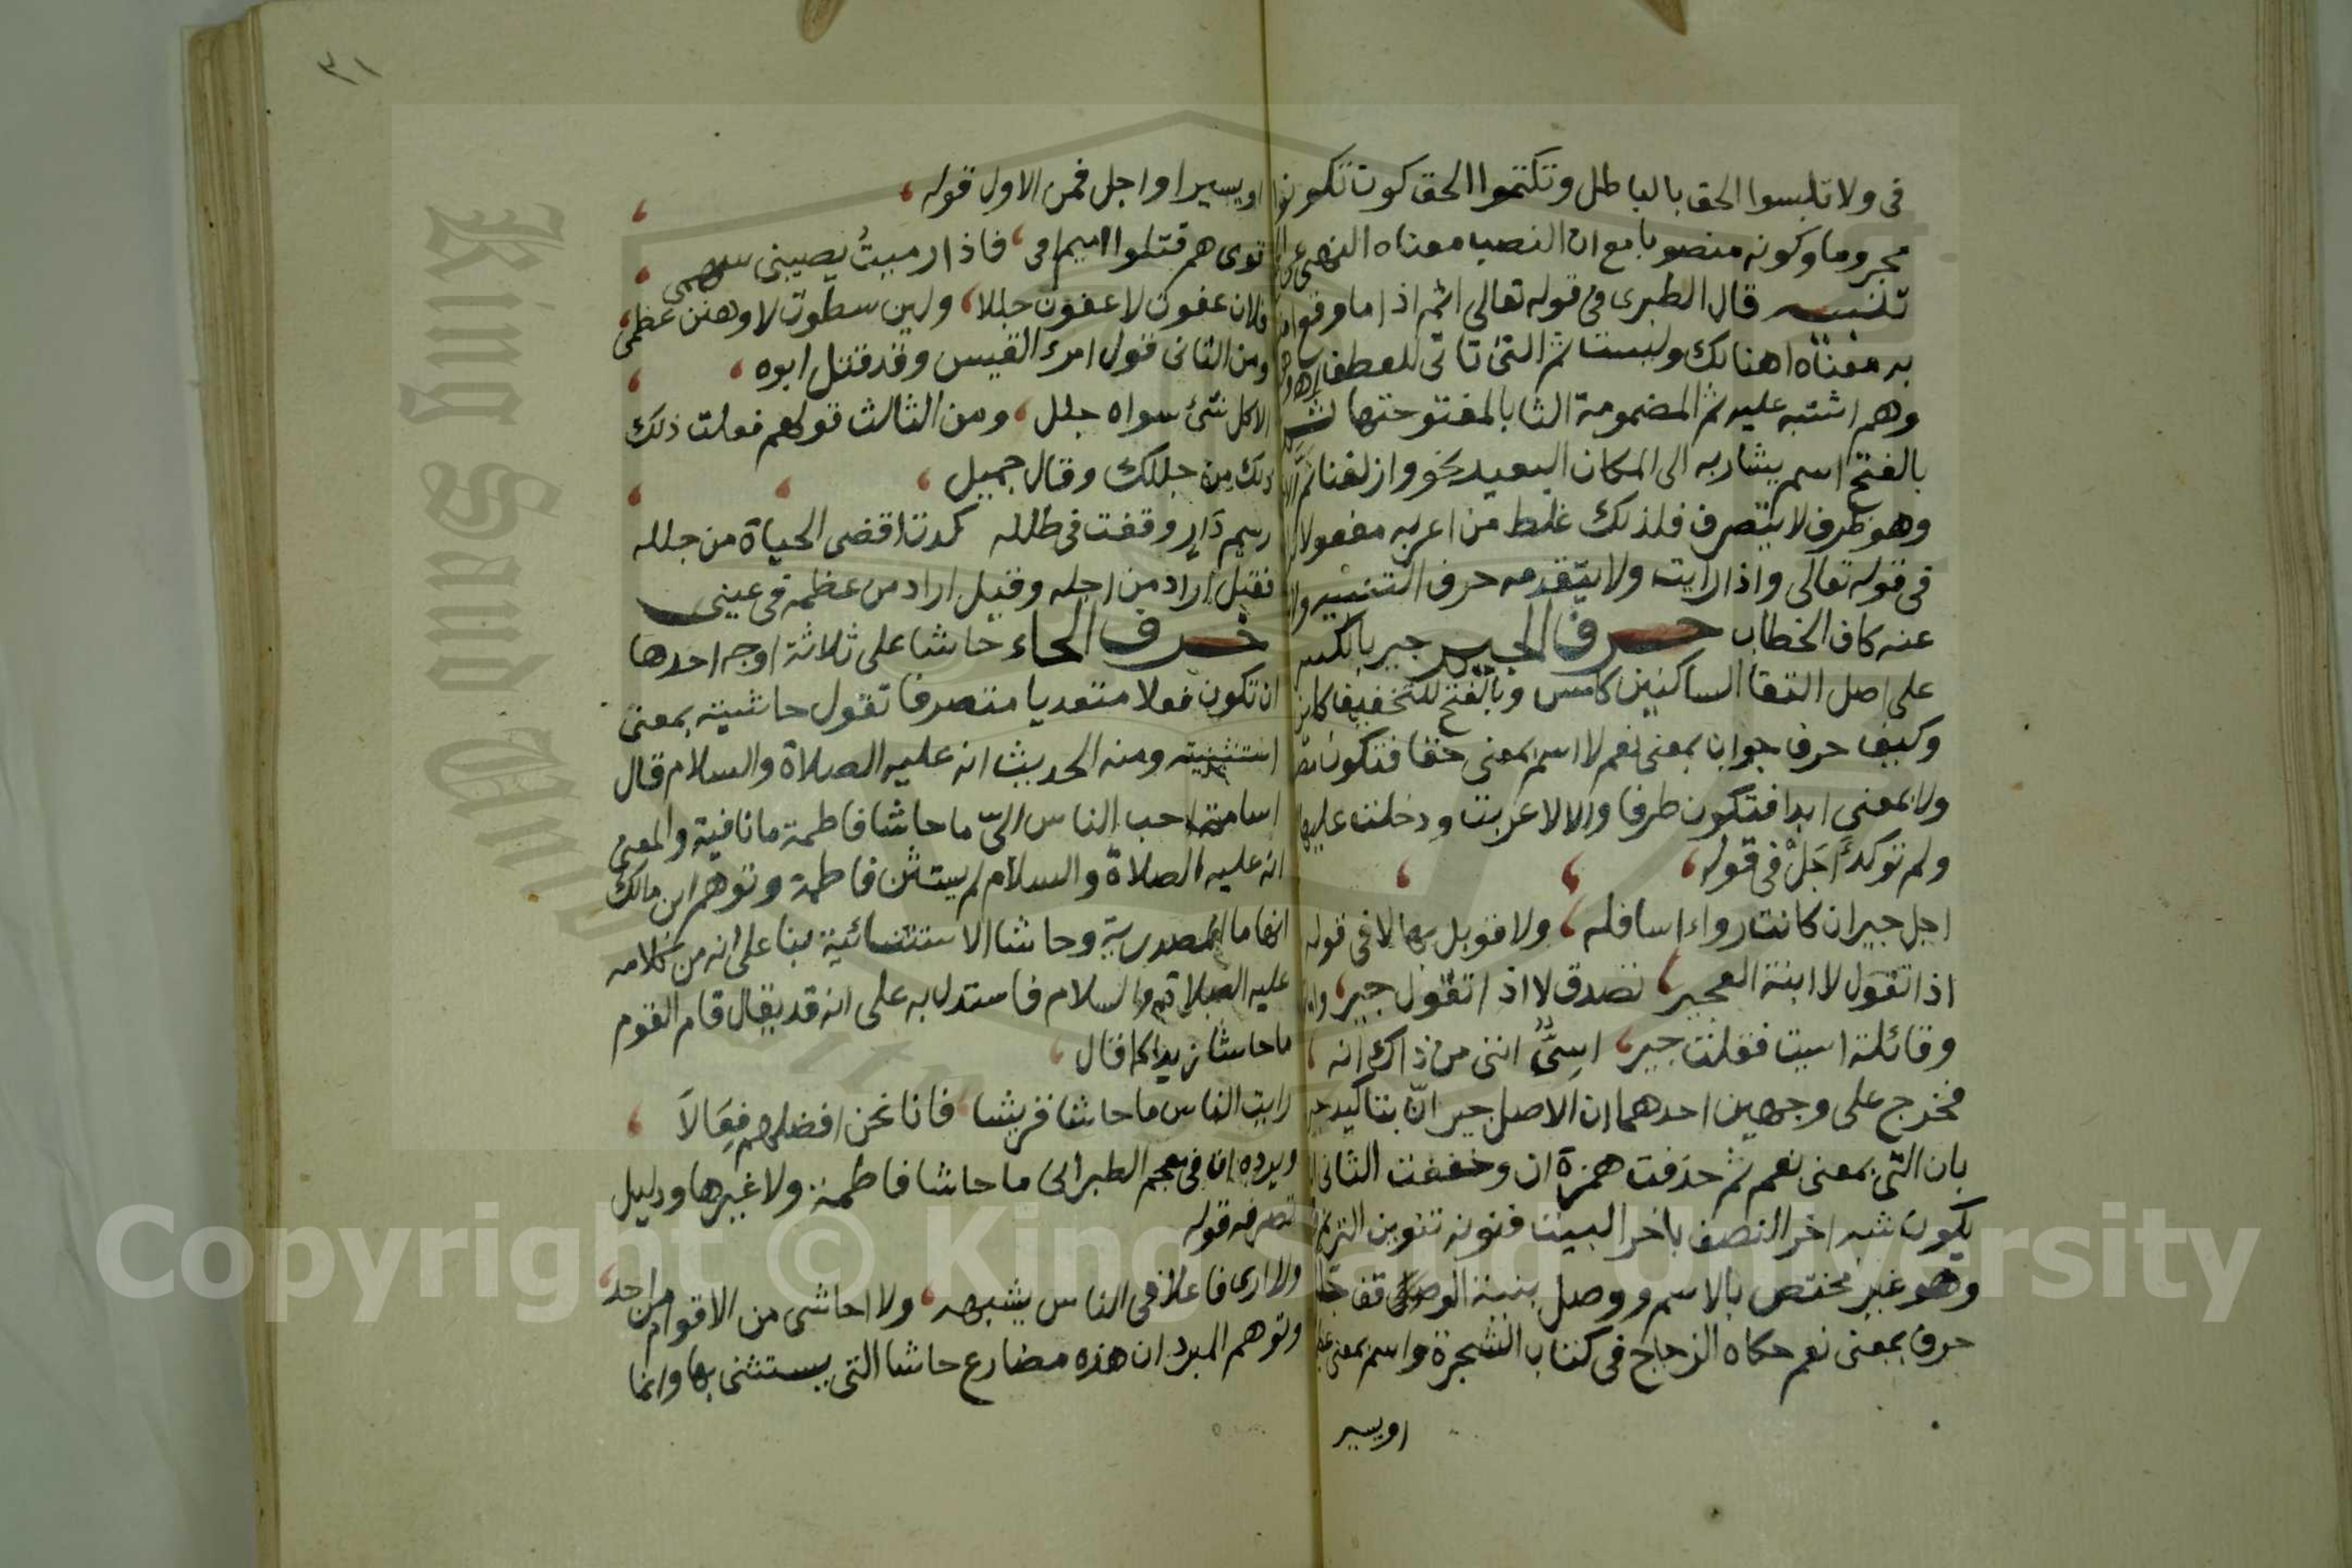 فى ولا تلبسوا الحق بالباطل وتكتموا الحق كون تكونوا
مجروما وكونه منصوبا مع ان النصب معناه النهى عن
تنبيه قال الطبرى فى قوله تعالى اثم اذا ما وقع امنتم
به معناه اهنالك وليست ثم التى تاتى للعطف
وهم اشتبه عليه ثم المضمومة الثا بالمفتوحتها
بالفتح اسم يشار به الى المكان البعيد نحو وازلفنا ثم
وهو ظرف لا يتصرف فلذلك غلط من اعربه مفعولا
فى قوله تعالى واذا رايت ولا يتقدمه حرف التنبيه ولا
عنه كاف الخطاب حرف الجيم جير بالكسر
على اصل التقا الساكنين كامس وبالفتح للتخفيف كاين
وكيف حرف جواب بمعنى نعم لا اسم بمعنى حقا فتكون
ولا بمعنى ابدا فتكون ظرفا والا لاعربت ودخلت عليها
ولم توكد اجل فى قوله
اجل جير ان كانت رواء اسافله ولا قوبل بها لا فى قوله
اذا تقول لا ابنة العجير تصدق لا اذا تقول جير
وقائلة اسيت فقلت جير اسىٌّ اننى من ذاك انه
فخرج على وجهين احدهما ان الاصل جير انّ بتاكيد جير
بان التى بمعنى نعم ثم حذفت همزة ان وخففت الثانى
يكون شبه اخر النصف باخر البيت فنونه تنوين الترنم
وهو غير مختص بالاسم ووصل بنية الوقف
حرف بمعنى نعم حكاه الزجاج فى كتاب الشجرة واسم بمعنى
او يسير
٣١
او يسيرا واجل فمن الاول قوله
قومى هم قتلوا اميم اخى فاذا رميتُ يصيبنى سهمى
فلان عفوت لاعفون جللا ولين سطوت لاوهنن عظمى
ومن الثانى قول امرء القيس وقد قتل ابوه
الا كل شئ سواه جلل ومن الثالث قولهم فعلت ذلك
ذلك من جللك وقال جميل
رسم دار وقفت فى طلله كدت اقضى الحياة من جلله
فقيل اراد من اجله وقيل اراد من عظمه فى عينى
حرف الحاء حاشا على ثلاثة اوجه احدها
ان تكون فعلا متعديا متصرفا تقول حاشيته بمعنى
استثنيته ومنه الحديث انه عليه الصلاة والسلام قال
اسامة احب الناس الىّ ما حاشا فاطمة ما نافية والمعنى
انه عليه الصلاة والسلام لم يستثن فاطمة وتوهم ابن مالك
انها ما المصدرية وحاشا الاستثنائية بنا على انه من كلامه
عليه الصلاة والسلام فاستدل به على انه قد يقال قام القوم
ما حاشا زيدا كما قال
رايت الناس ما حاشا قريشا فانا نحن افضلهم فِعَالاَ
ويرده ان فى معجم الطبرانى ما حاشا فاطمة ولا غيرها ودليل
تصرفه قوله
ولا ارى فاعلا فى الناس يشبهه ولا احاشى من الاقوام من احد
وتوهم المبرد ان هذه مضارع حاشا التى يستثنى بها وانما
King Saud University
Copyright © King Saud University